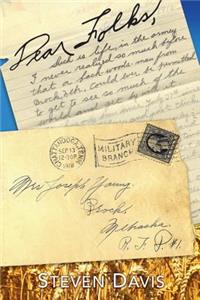 Dear Folks,
What is life in the army
I never realized so much before
that a back woods man from
Brock, Neb. could ever be permitted
to get to see so much of the
world and get by with it
CHATTANOOGA, TENN.
SEP 13
12-30 P
1918
MILITARY
BRANCH
Mrs Joseph Young
Brock
Nebraska
R.F.D. #1
STEVEN DAVIS